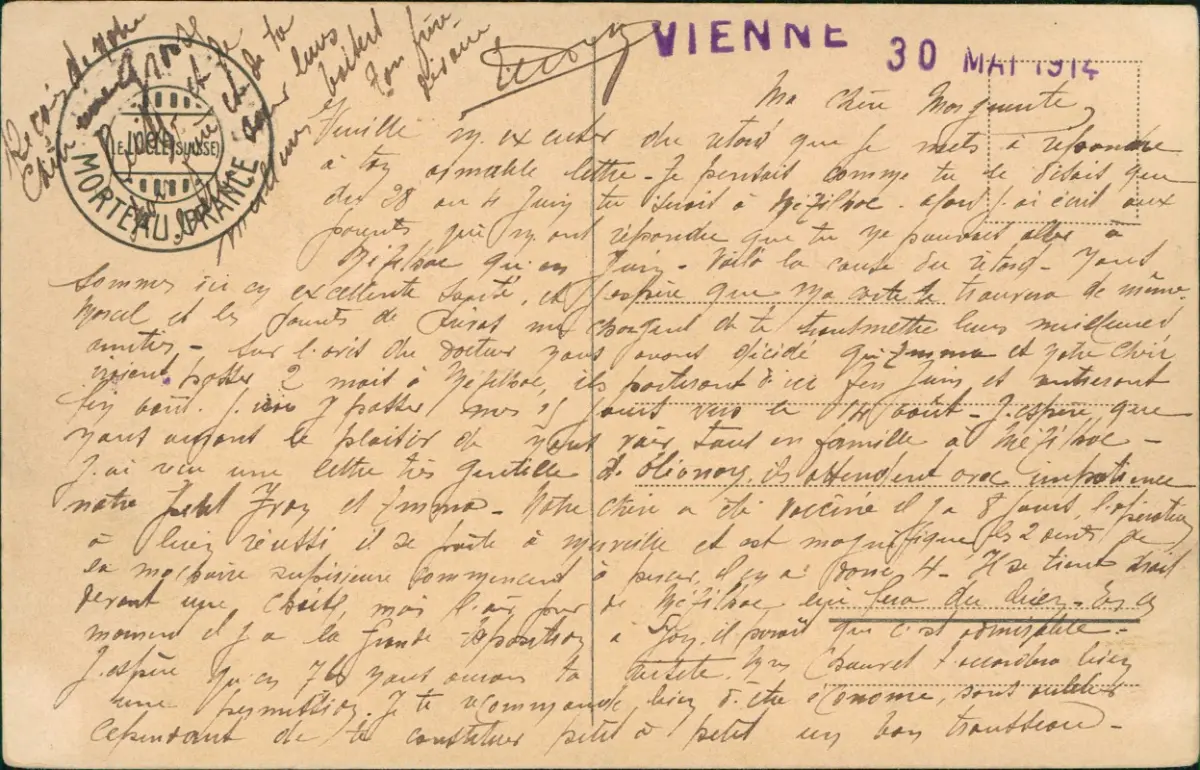 VIENNE 30 MAI 1914
LE LOCLE (SUISSE)
MORTEAU, FRANCE
Ma chère Marguerite,
Veuille m'excuser du retard que je mets à répondre
à ton aimable lettre - Je pensais comme tu le disais que
du 28 au 4 Juin tu serais à Mézilhac. alors j'ai écrit aux
parents qui m'ont répondu que tu ne pouvais aller à
Mézilhac qu'en Juin - Voilà la cause du retard - Nous
sommes ici en excellente santé, et j'espère que ma carte te trouvera de même.
Marcel et les parents de me chargent de te transmettre leurs meilleures
amitiés - Sur l'avis du docteur nous avons décidé qu'Emma et notre chéri
iraient passer 2 mois à Mézilhac, ils partiront d'ici fin Juin et rentreront
fin août. J'irai y passer mes 15 jours vers le 14 août - J'espère que
nous aurons le plaisir de nous voir tous en famille à Mézilhac -
J'ai vu une lettre très gentille d' ils attendent avec impatience
notre petit et Emma - Notre chéri a été vacciné il y a 8 jours, l'opération
a bien réussi il se porte à merveille et est magnifique, les 2 dents de
sa machoire supérieure commencent à percer, il en a donc 4 - Il se tient droit
devant une chaise, mais l'air pur de Mézilhac lui fera du bien - En ce
moment il y a la Grande Exposition à Lyon, il parait que c'est admirable -
J'espère qu'en 7bre nous aurons ta visite. Mme t'accordera bien
une permission. Je te recommande bien d'être économe, sans oublier
cependant de te constituer petit à petit un bon trousseau -
Reçois de notre
chéri une grosse
et de
ton frère